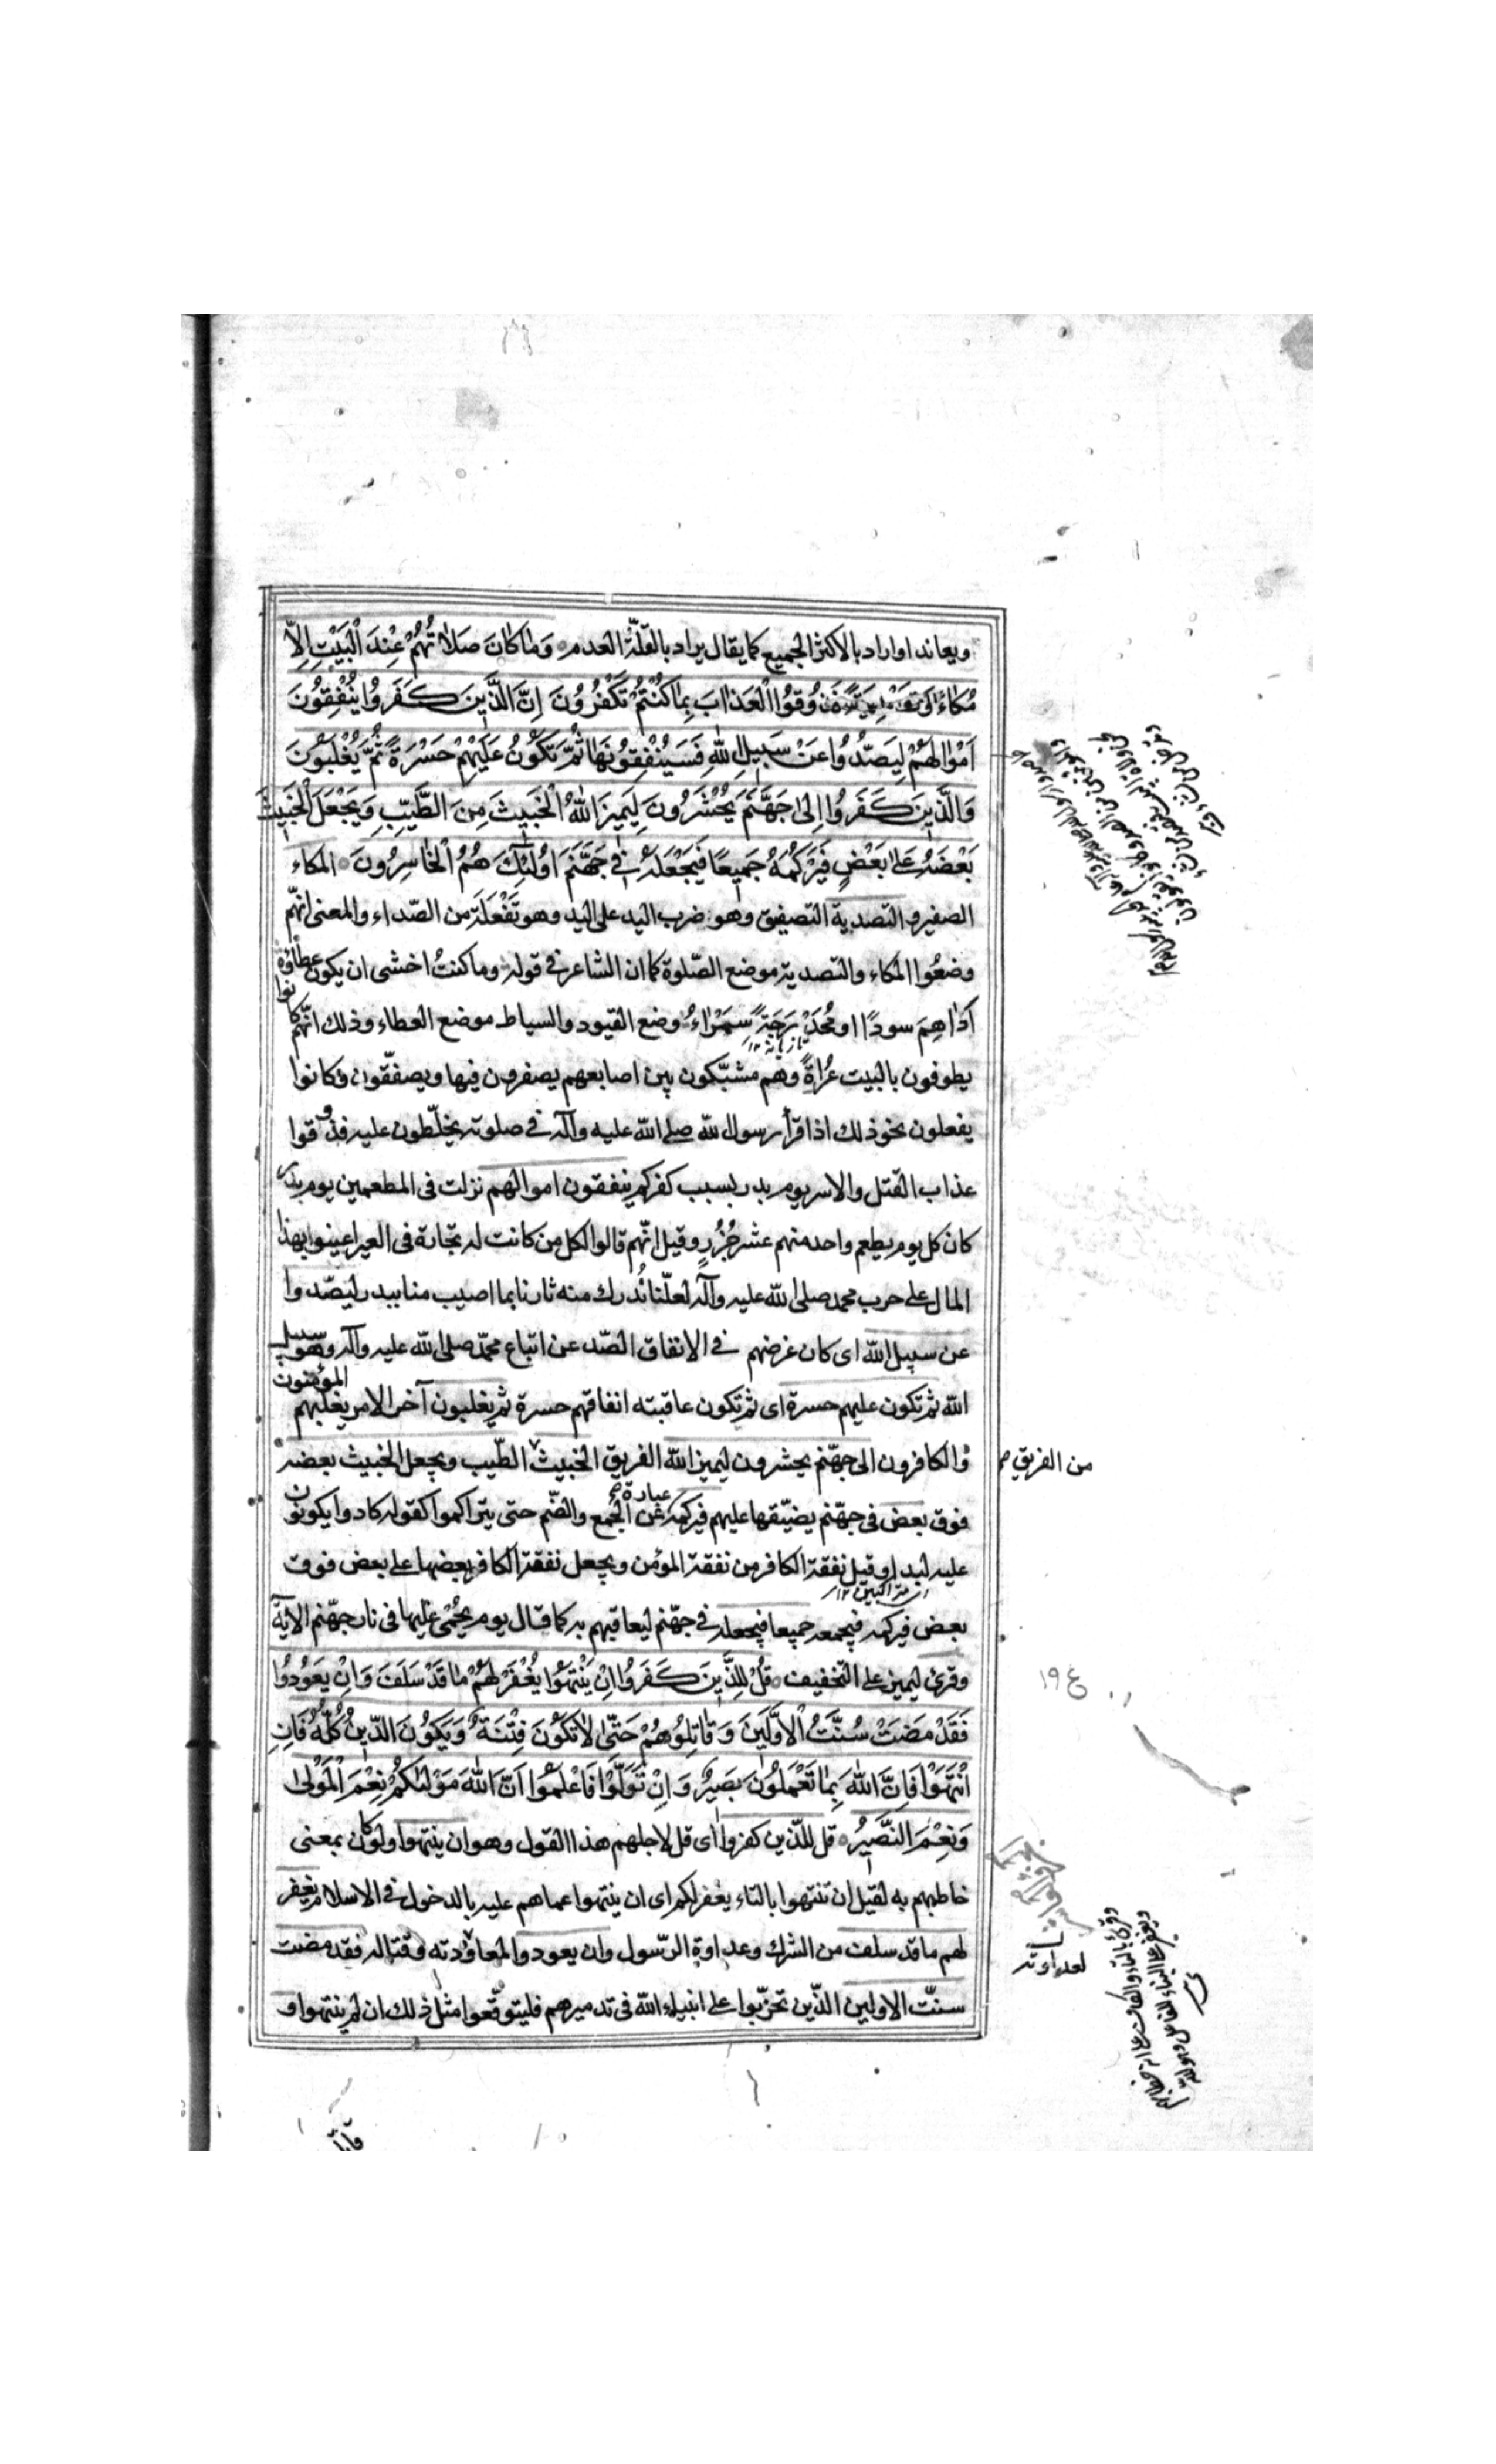 ويعاند او اراد بالاكثر الجميع كما يقال يراد بالقلّة العدم وَمَا كَانَ صَلَاتُهُمْ عِنْدَ الْبَيْتِ اِلَّا
مُكَاءً وَتَصْدِيَةً فَذُوقُوا الْعَذَابَ بِمَا كُنْتُمْ تَكْفُرُونَ اِنَّ الَّذِينَ كَفَرُوا يُنْفِقُونَ
اَمْوَالَهُمْ لِيَصُدُّوا عَنْ سَبِيلِ اللّٰهِ فَسَيُنْفِقُونَهَا ثُمَّ تَكُونُ عَلَيْهِمْ حَسْرَةً ثُمَّ يُغْلَبُونَ
وَالَّذِينَ كَفَرُوا اِلىٰ جَهَنَّمَ يُحْشَرُونَ لِيَمِيزَ اللّٰهُ الْخَبِيثَ مِنَ الطَّيِّبِ وَيَجْعَلَ الْخَبِيثَ
بَعْضَهُ عَلىٰ بَعْضٍ فَيَرْكُمَهُ جَمِيعًا فَيَجْعَلَهُ فِي جَهَنَّمَ اُولٰئِكَ هُمُ الْخَاسِرُونَ المكاء
الصفير والتصدية التصفيق وهو ضرب اليد على اليد وهو تَفْعَلَة من الصّداء والمعنى انّهم
وضعُوا المكاء والتصدية موضع الصّلوة كما ان الشاعر في قوله وما كنتُ اخشى ان يكون عطاؤه
اَدَاهِمَ سودًا او مُحَدْرَجَةً سَمْرَاءُ وضع القيود والسياط موضع العطاء وذلك انّهم كانوا
تازيانه ١٢
يطوفون بالبيت عُراةً وهم مشبّكون بين اصابعهم يصفرون فيها ويصفّقون وكانوا
يفعلون نحو ذلك اذا قرأ رسول الله صلى الله عليه وآله في صلوته يخلّطون عليه فذوقوا
عذاب القتل والاسر يوم بدر بسبب كفركم ينفقون اموالهم نزلت في المطعمين يوم بدر
كان كل يوم يطعم واحد منهم عشر جُزُرٍ وقيل انّهم قالوا لكل من كانت له تجارة في العير اعينوا بهذا
المال على حرب محمد صلى الله عليه وآله لعلّنا نُدرك منه ثارنا بما اصيب منا ببدر ليصّدوا
عن سبيل الله اى كان غرضهم في الانفاق الصّد عن اتباع محمّد صلى الله عليه وآله وهو سبيل
الله ثم تكون عليهم حسرة اى ثم تكون عاقبته انفاقهم حسرة ثم يغلبون آخر الامر يغلبهم المؤمنون
والكافرون الى جهّنم يحشرون ليميز الله الفريق الخبيث الطّيب ويجعل الخبيث بعضه
من الفريق
فوق بعض في جهّنم يضيّقها عليهم فيركمه عبارة عن الجمع والضّم حتى يتراكموا كقوله كادوا يكونون
عليه لبدا وقيل نفقة الكافر من نفقة المؤمن ويجعل نفقة الكافر بعضها على بعض فوق
بعض فيركمه فيجمعه جميعا فيجعله في جهّنم ليعاقبهم به كما قال يوم يُحْمى عليها في نار جهّنم الآية
وقرئ ليميز على التخفيف قُلْ لِلَّذِينَ كَفَرُوا اِنْ يَنْتَهُوا يُغْفَرْ لَهُمْ مَا قَدْ سَلَفَ وَاِنْ يَعُودُوا
فَقَدْ مَضَتْ سُنَّتُ الْاَوَّلِينَ وَقَاتِلُوهُمْ حَتّٰى لَا تَكُونَ فِتْنَةٌ وَيَكُونَ الدِّينُ كُلُّهُ فَاِنِ
انْتَهَوْا فَاِنَّ اللّٰهَ بِمَا تَعْمَلُونَ بَصِيرٌ وَاِنْ تَوَلَّوْا فَاعْلَمُوا اَنَّ اللّٰهَ مَوْلٰيكُمْ نِعْمَ الْمَوْلىٰ
وَنِعْمَ النَّصِيرُ قل للّذين كفروا اى قل لاجلهم هذا القول وهو ان ينتهوا ولو كان بمعنى
خاطبهم به لقيل ان تنتهوا بالتاء يغفر لكم اى ان ينتهوا عما هم عليه بالدخول في الاسلام يغفر
لهم ما قد سلف من الشرك وعداوة الرّسول وان يعودوا لمعاودته وقتاله فقد مضت
لعداوته
سنّت الاولين الذّين تحزّبوا على انبياء الله في تدميرهم فليتوقّعوا مثل ذلك ان لم ينتهوا و